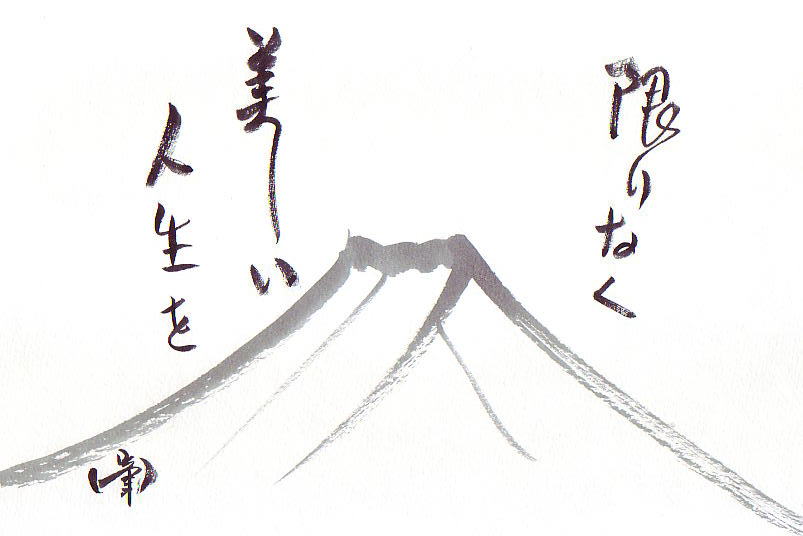 限りなく
美しい
人生を